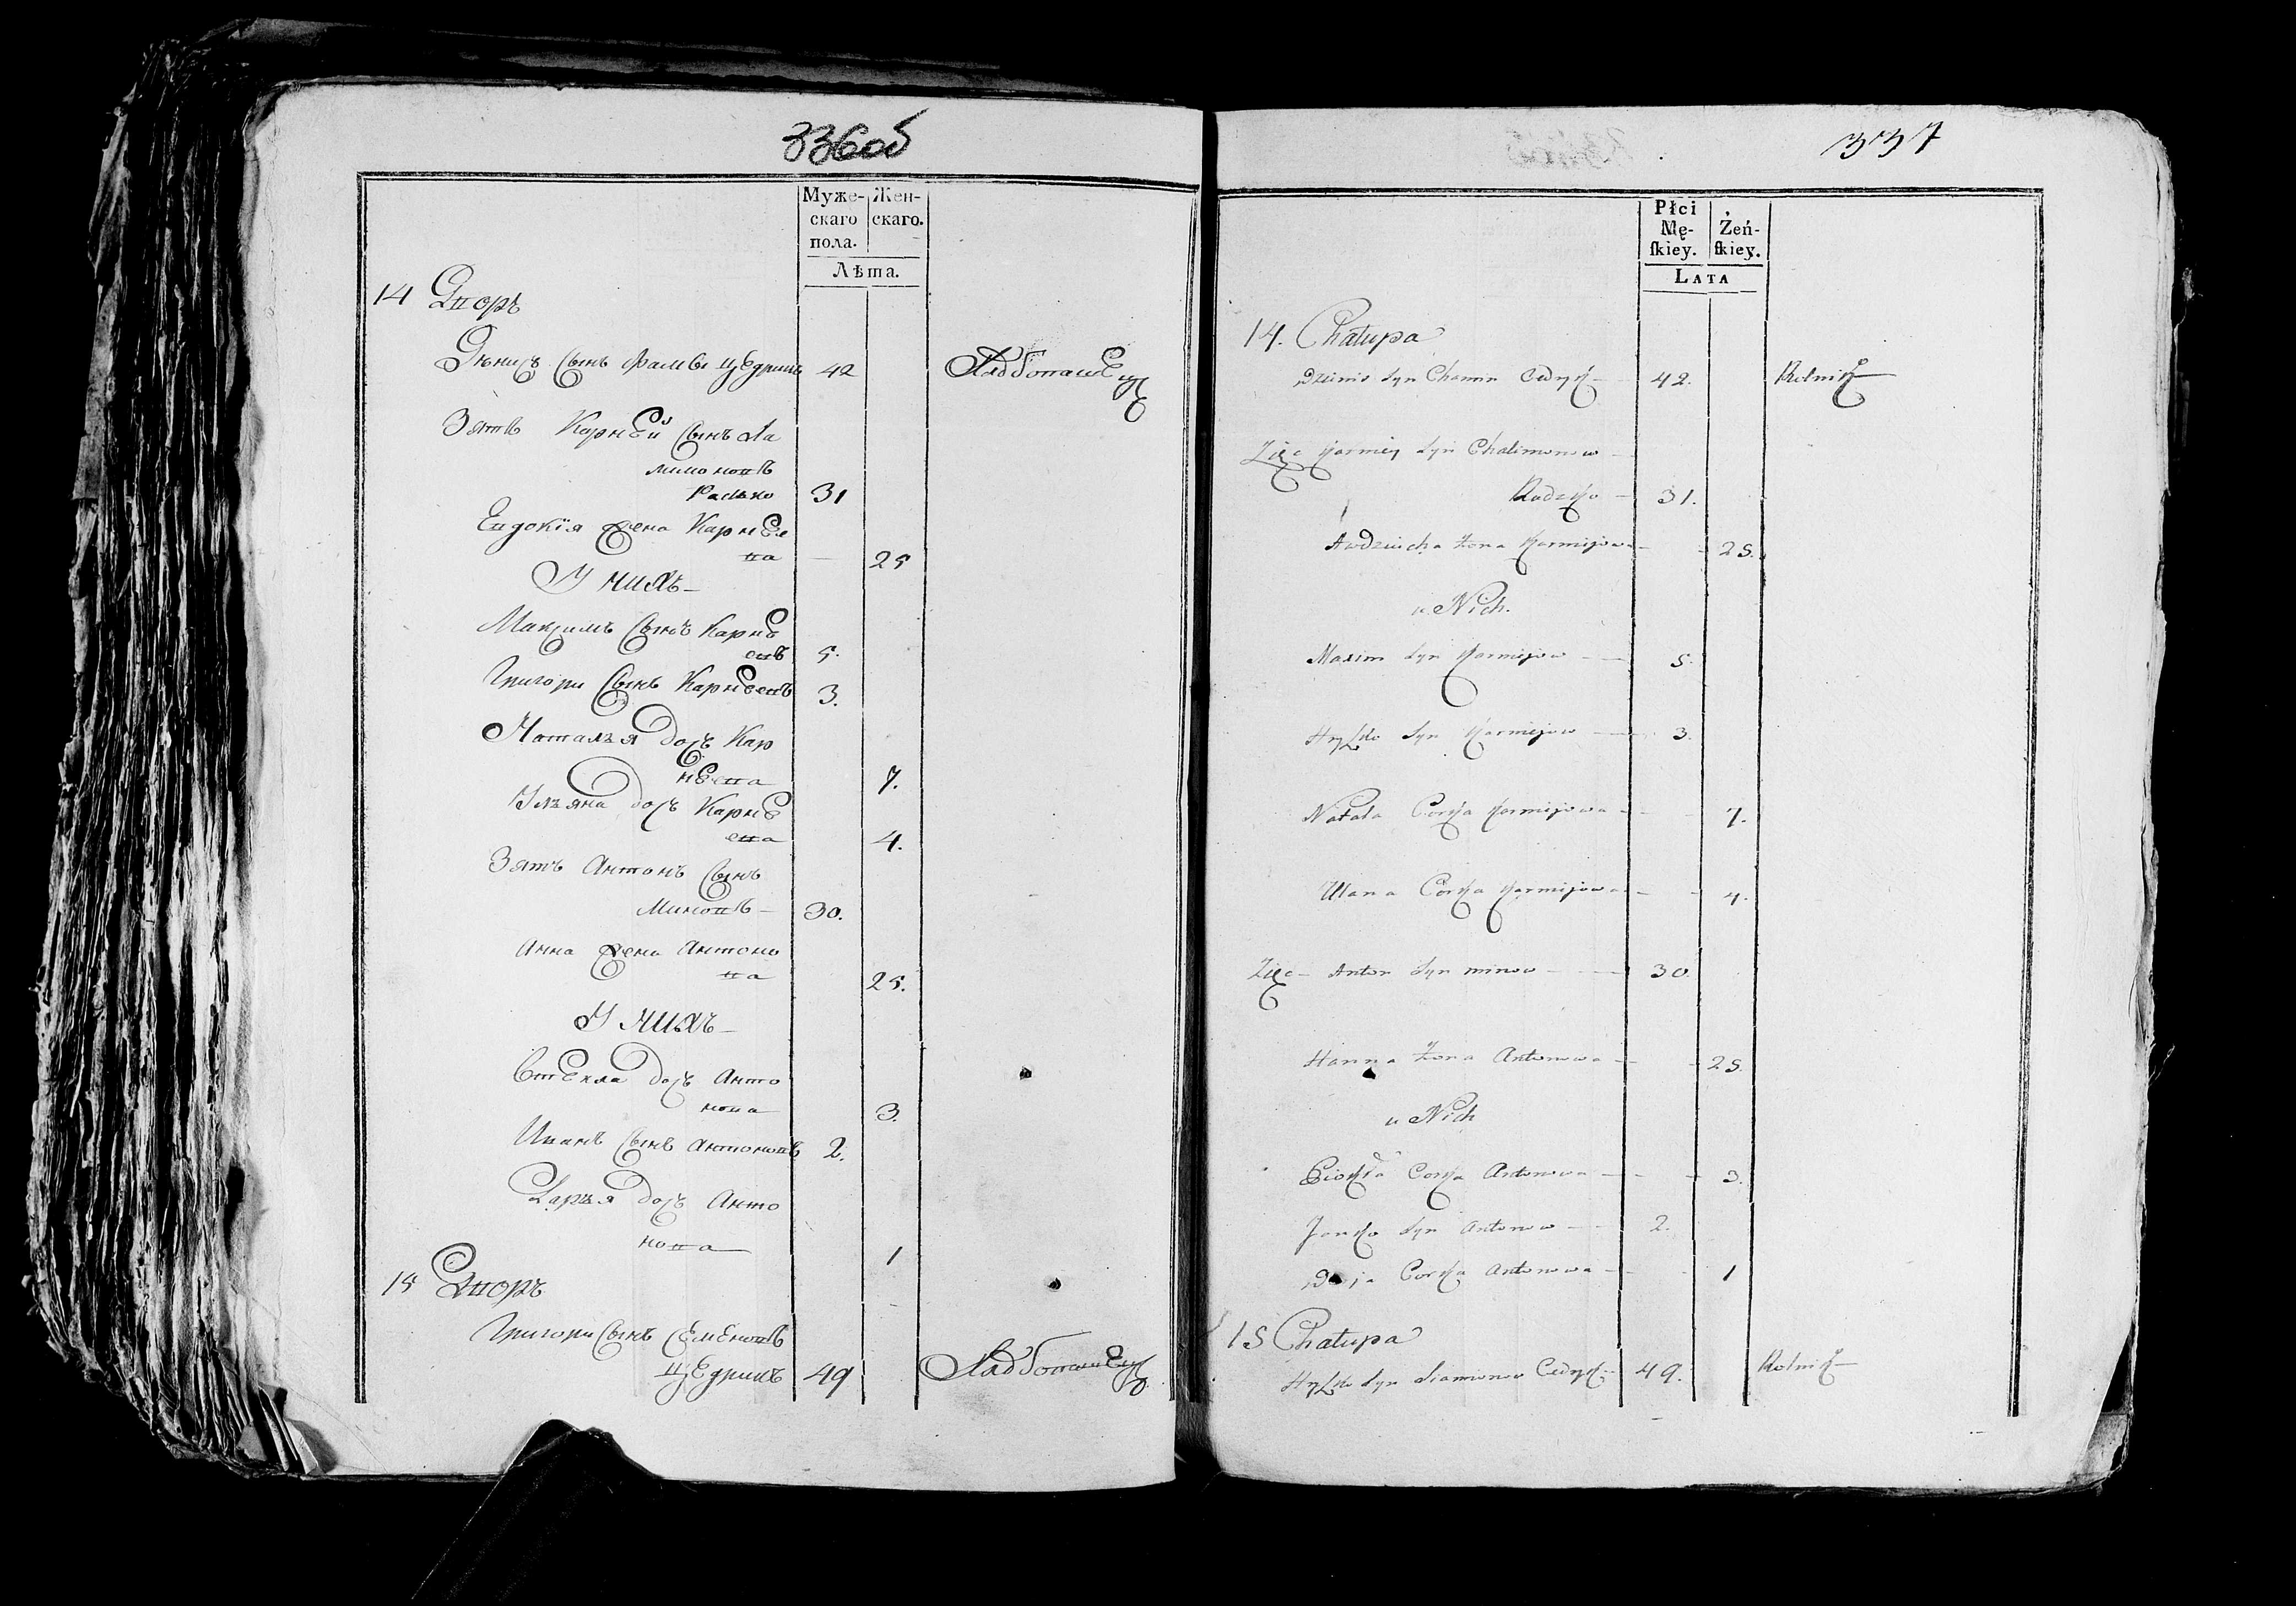 336об
Муже-
скаго
пола.
Жен-
скаго.
Лѣта.
14 Дворъ
Дѣнисъ Сынъ Фамы Цѣдрикъ 42 Хлѣбопашец
Зять Карнѣй Сынъ Ха
лимоновъ
Радько 31
Евдокія жена Карнѣе
ва — 25
У нихъ —
Максимъ Сынъ Карнѣ
евъ 5.
Григори Сынъ Карнѣевъ 3.
Наталья дочь Кар
нѣева 7.
Ульяна дочь Карнѣ
ева 4.
Зять Антонъ Сынъ
Миновъ — 30.
Анна жена Антоно
ва 25.
У нихъ —
Стекла дочь Анто
нова 3.
Иванъ Сынъ Антоновъ 2.
Дарья дочь Анто
нова 1
15 Дворъ
Григори Сынъ Семеновъ
Цедрикъ 49 Хлѣбопашец
337
Płci
Mę-
ſkiey.
Żeń-
ſkiey.
Lata
14. Chałupa
Dzienis Syn Chomin Cedryk 42. Rolnik
Zięc Karniey Syn Chalimonow
Radzko 31.
Awdziucha Żona Karniejowa 25.
u Nich.
Maxim Syn Karniejow 5.
Hryszko Syn Karniejow 3.
Natala Corka Karniejowa 7.
Ulana Corka Karniejowa 4.
Zięc Anton Syn minow 30.
Hanna Żona Antonowa 25
u Nich
Ciokła Corka Antonowa 3.
Janko Syn Antonow 2.
Corka Antonowa 1
15 Chałupa
Hryszko Syn Siamionow Cedryk 49. Rolnik